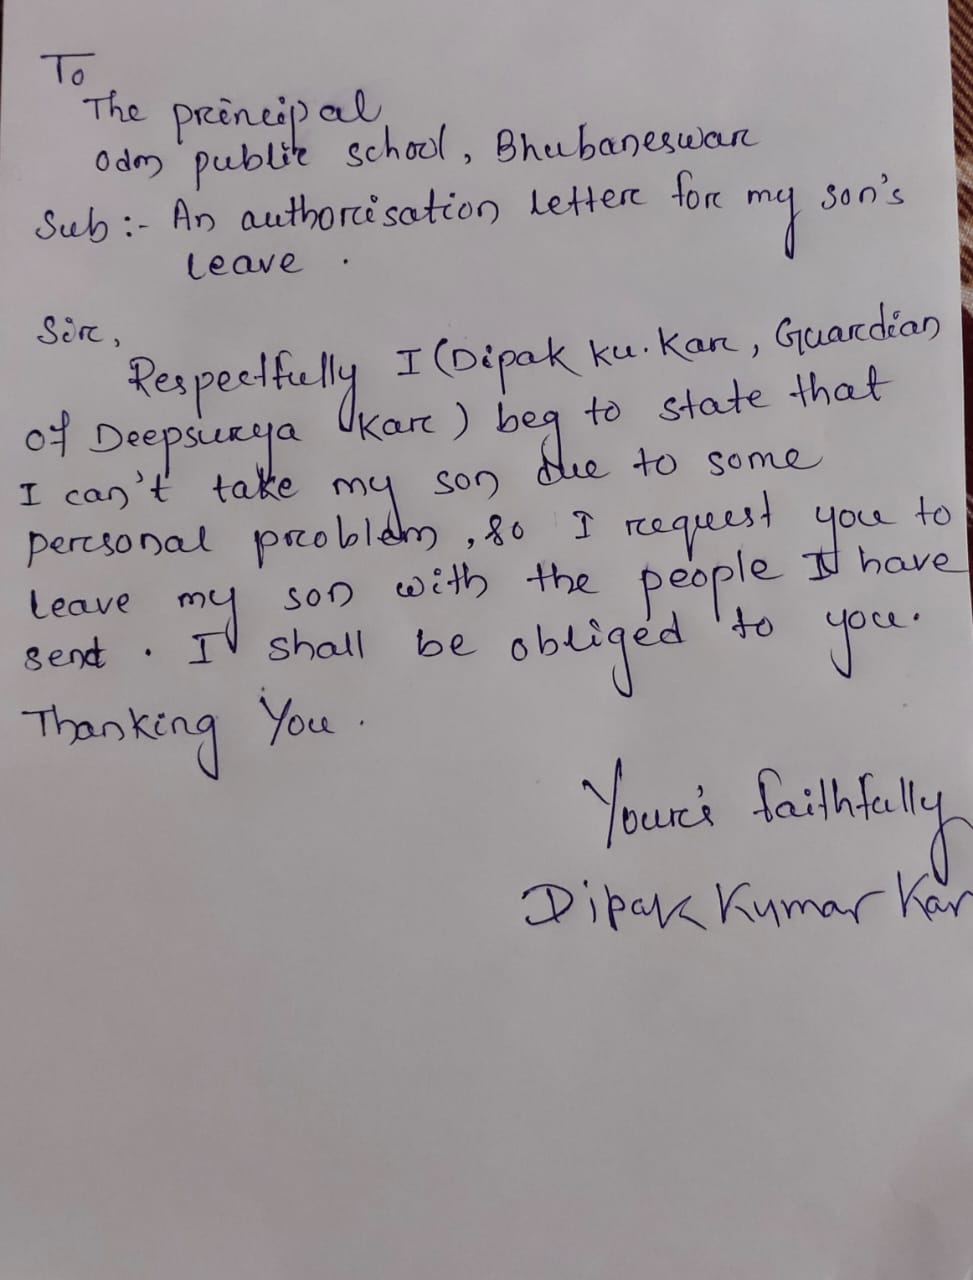 To
The principal
Odm public school, Bhubaneswar
Sub :- An authorisation letter for my son's
leave .
Sir,
Respectfully I (Dipak ku. Kar, Guardian
of Deepsurya Kar) beg to state that
I can't take my son due to some
personal problem, so I request you to
leave my son with the people I have
send . I shall be obliged to you.
Thanking You .
Your's faithfully
Dipak Kumar Kar